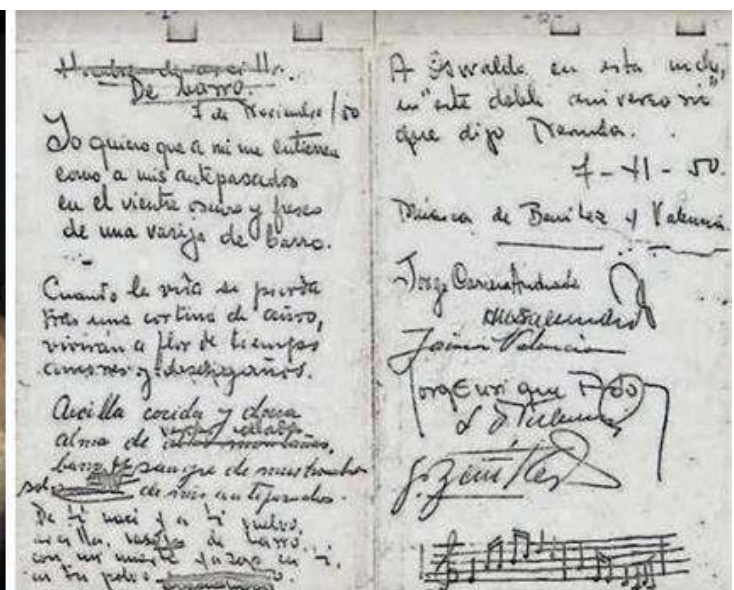 - 1 -
De barro.
7 de Noviembre / 50
Yo quiero que a mi me entierren
como a mis antepasados
en el vientre oscuro y fresco
de una vasija de barro.
Cuando la vida se pierda
tras una cortina de años,
vivirán a flor de tiempo
amores y desengaños.
Arcilla cocida y dura
alma de verdes collados,
sangre de mis hombres
sol de mis antepasados.
De ti nací y a ti vuelvo,
arcilla, vaso de barro.
con mi muerte yazgo en ti,
en tu polvo
A Oswaldo en esta noche,
en "este doble aniversario",
que dijo Neruda.
7 - XI - 50.
Música de Benítez y Valencia.
Jorge Carrera Andrade
Jaime Valencia
Jorge Enrique Adoum